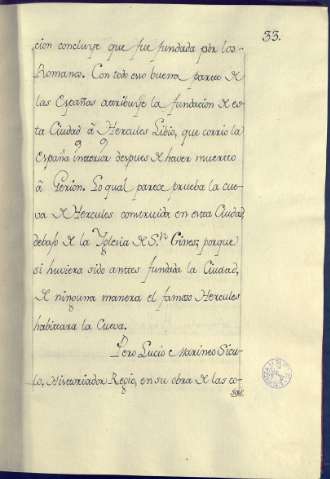 33.
cion concluyse que fue fundada pòr los
Romanos. Con todo eso buena parte de
las Españas atribuyse la fundacion de es
ta Ciudad â Hercules Libio, que corrio la
España interior despues de haver muerto
â Gerion. Lo qual parece prueba la cue
va de Hercules construida en esta Ciudad
debajo de la Yglesia de Sn. Gines; porque
si huviera sido antes fundada la Ciudad,
de ninguna manera el famoso Hercules
habitara la Cueva.
Pero Lucio e Marineo Sicu-
lo, Historiador Regio, en su obra de las co-